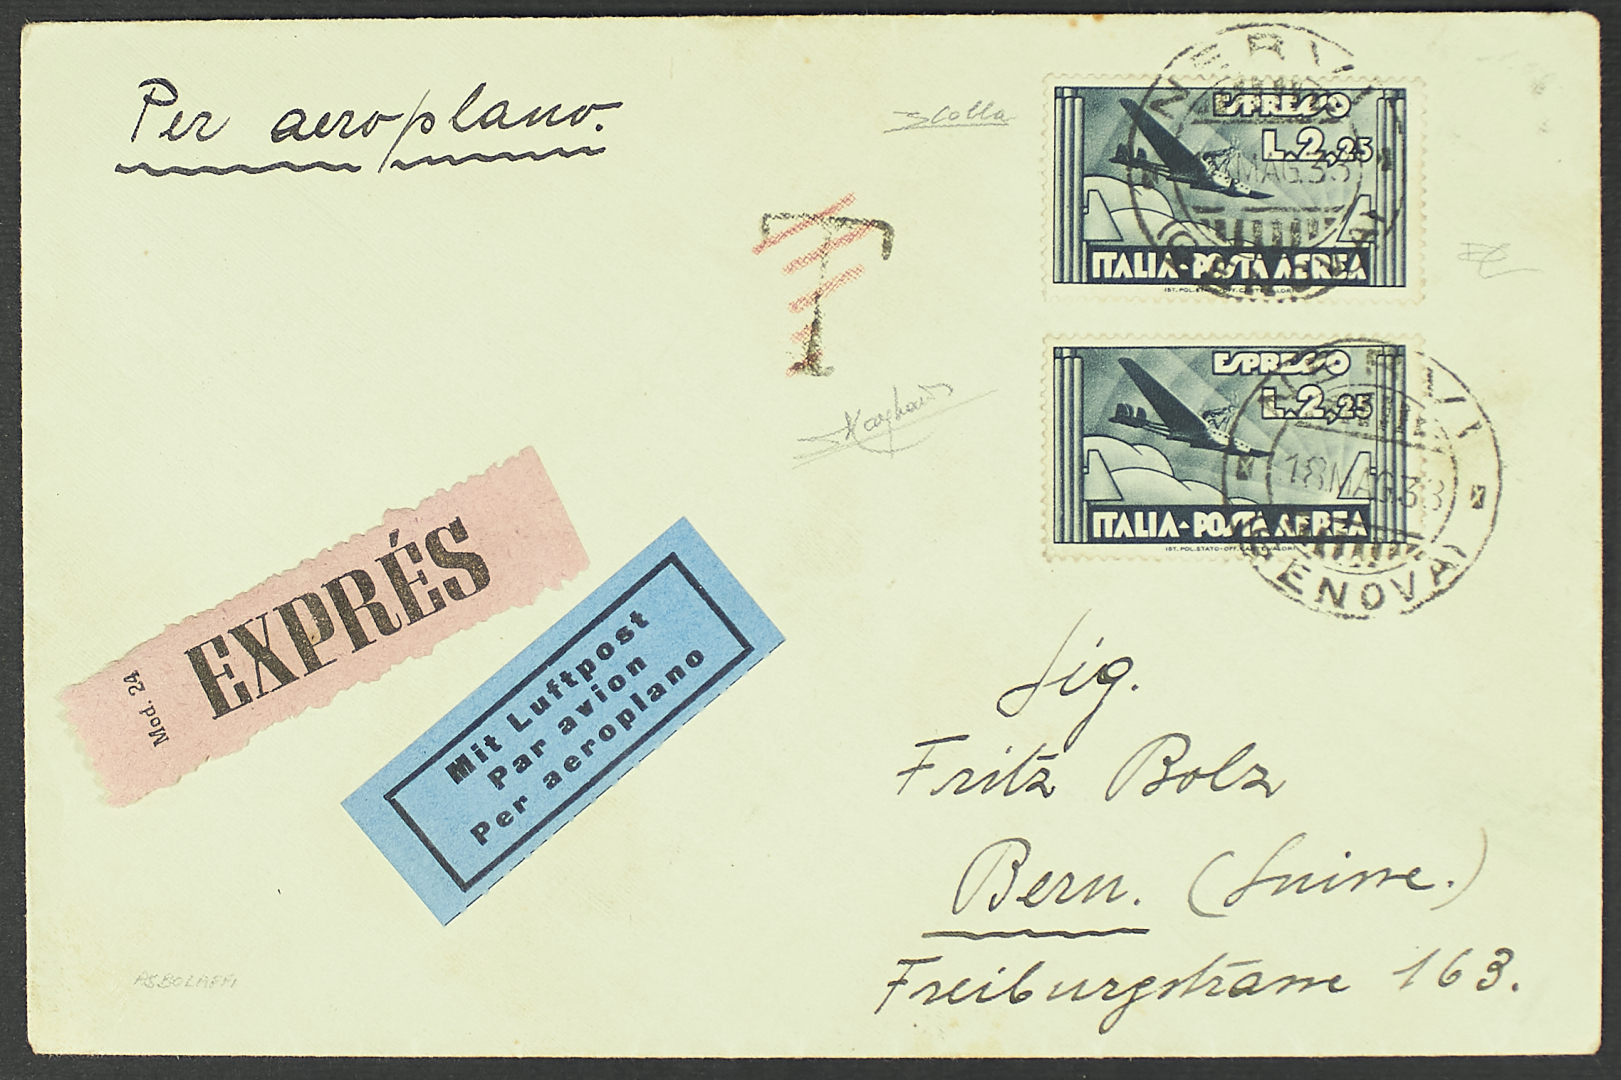 Per aeroplano.
T
ESPRESSO
L.2,25
ITALIA-POSTA AEREA
IST. POL. STATO-OFF. CARTE VALORI
NERVI
MAG.33
(GENOVA)
ESPRESSO
L.2,25
ITALIA-POSTA AEREA
IST. POL. STATO-OFF. CARTE VALORI
NERVI
18.MAG.33
(GENOVA)
EXPRÉS
Mod. 24
Mit Luftpost
Par avion
Per aeroplano
Sig.
Fritz Bolz
Bern. (Suisse.)
Freiburgstrasse 163.
ASBOLAFFI